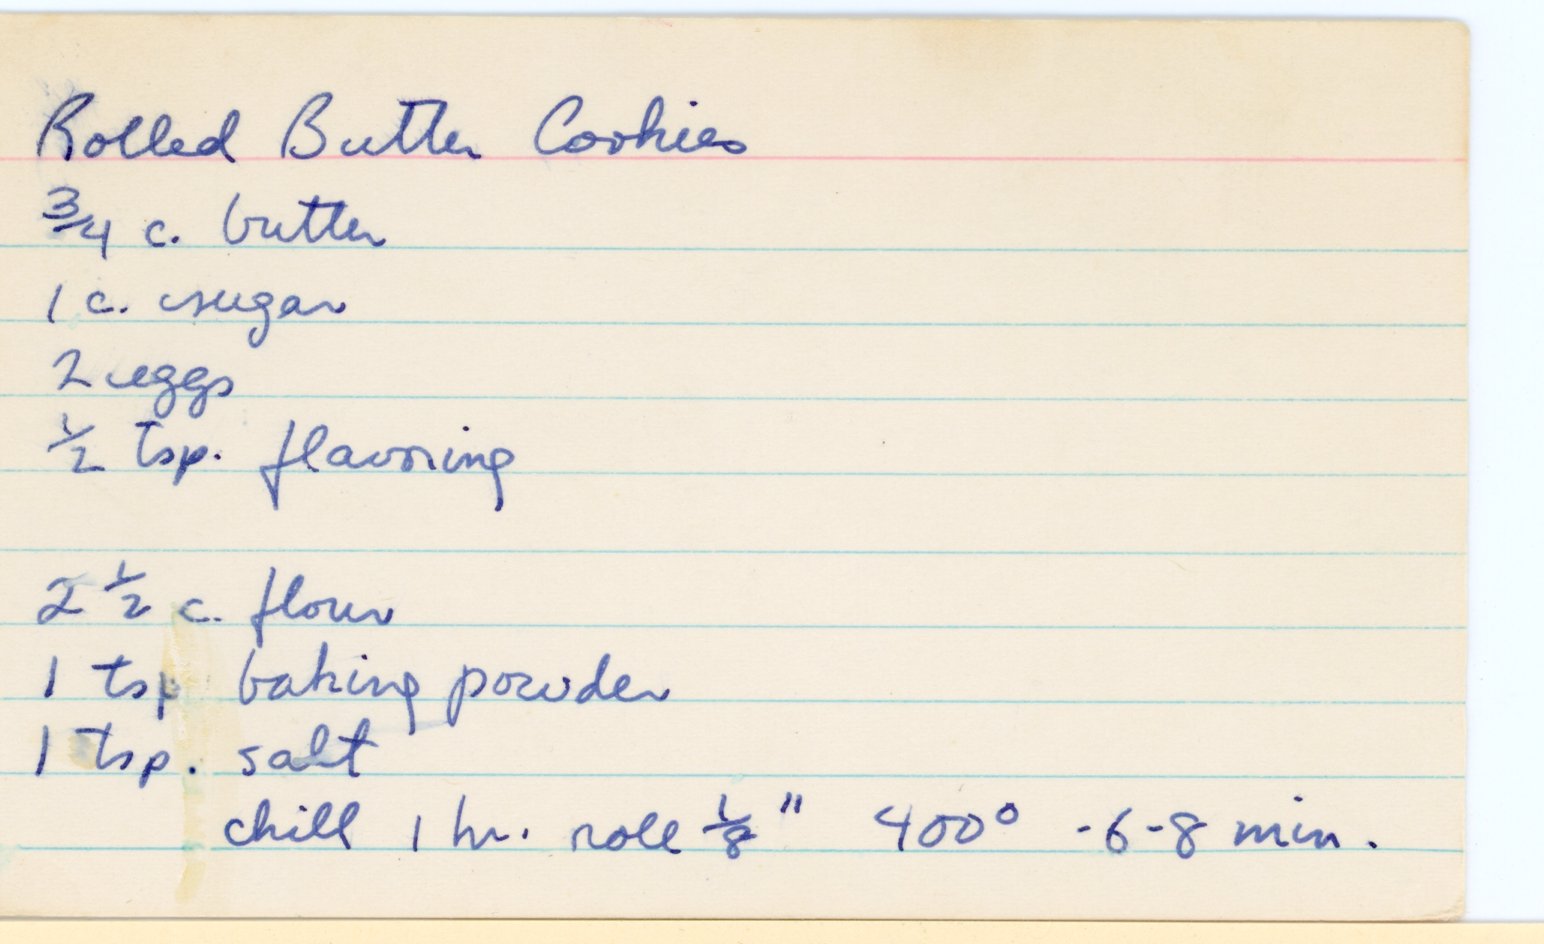 Rolled Butter Cookies
3/4 c. butter
1 c. sugar
2 eggs
1/2 tsp. flavoring
2 1/2 c. flour
1 tsp baking powder
1 tsp. salt
chill 1 hr. roll 1/8" 400° -6-8 min.